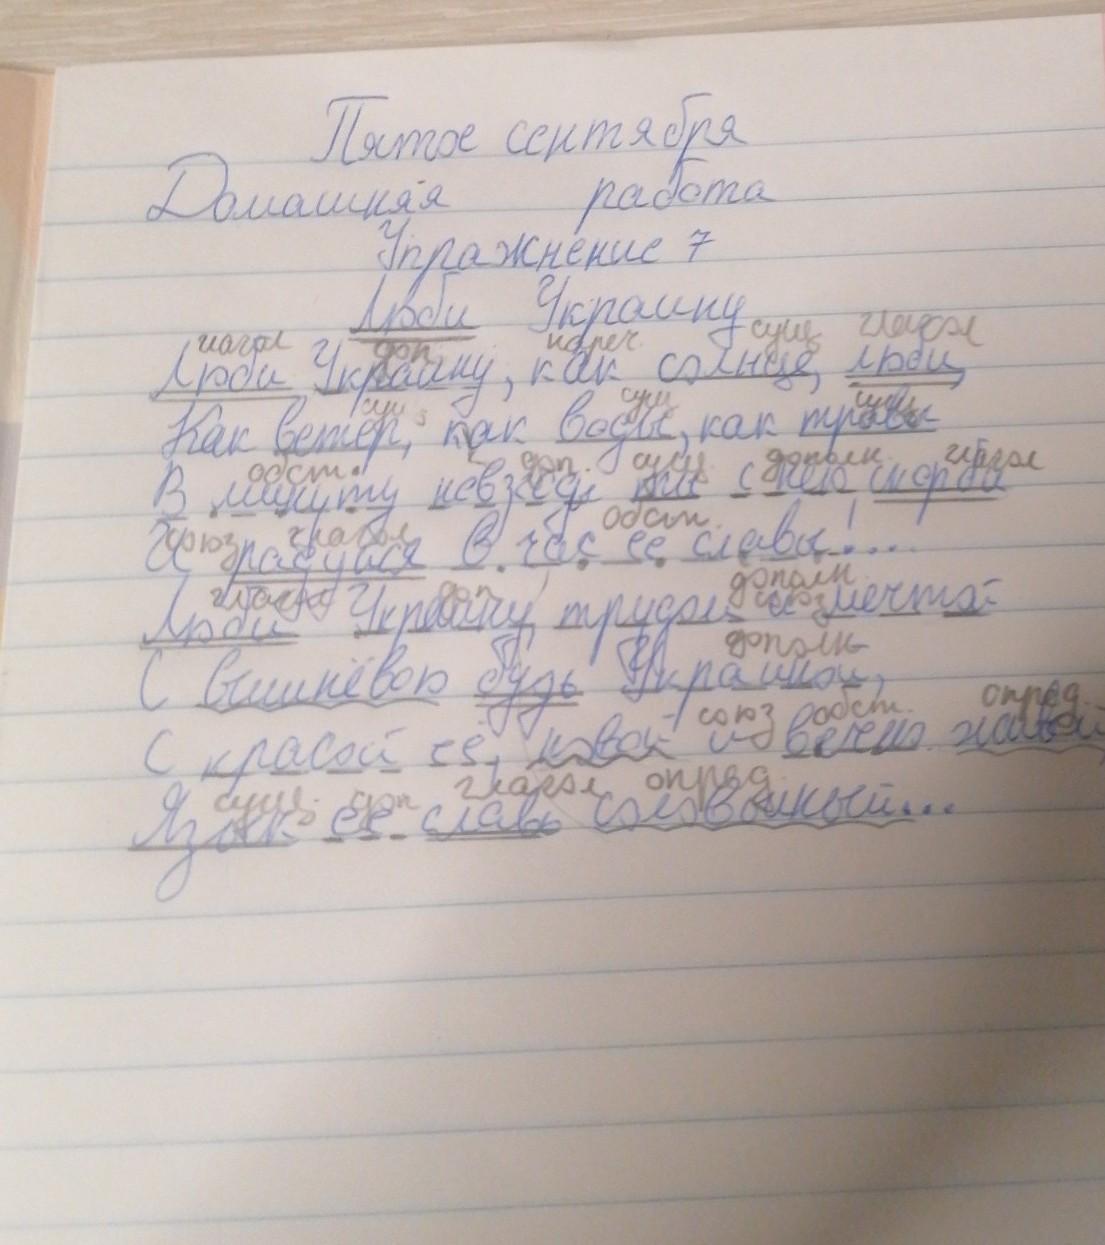 Пятое сентября
Домашняя работа
Упражнение 7
Люби Украину
глагол доп. нареч сущ глагол
Люби Украину, как солнце, люби,
сущ сущ сущ
Как ветер, как воды, как травы
обст. доп. сущ. дополн. глагол
В минуту невзгод ты с нею скорби
союз глагол обст.
И радуйся в час ее славы!...
глагол доп дополн союз
Люби Украину трудом и мечтой
дополн
С вишнёвою будь Украиной,
союз обст. опред.
С красой её, новой и вечно живой,
сущ. доп глагол опред.
Язык ее славь соловьиный...